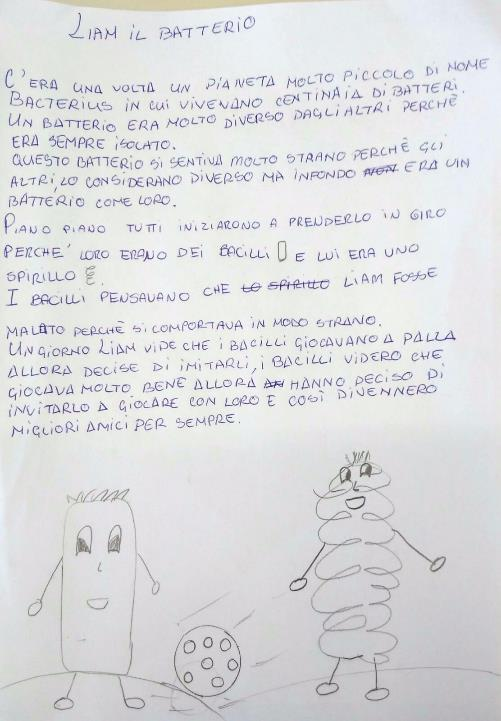 LIAM IL BATTERIO
C'ERA UNA VOLTA UN PIANETA MOLTO PICCOLO DI NOME
BACTERIUS IN CUI VIVEVANO CENTINAIA DI BATTERI.
UN BATTERIO ERA MOLTO DIVERSO DAGLI ALTRI PERCHÈ
ERA SEMPRE ISOLATO.
QUESTO BATTERIO SI SENTIVA MOLTO STRANO PERCHÈ GLI
ALTRI, LO CONSIDERANO DIVERSO MA INFONDO NON ERA UN
BATTERIO COME LORO.
PIANO PIANO TUTTI INIZIARONO A PRENDERLO IN GIRO
PERCHE' LORO ERANO DEI BACILLI E LUI ERA UNO
SPIRILLO.
I BACILLI PENSAVANO CHE LO SPIRILLO LIAM FOSSE
MALATO PERCHÈ SI COMPORTAVA IN MODO STRANO.
UN GIORNO LIAM VIDE CHE I BACILLI GIOCAVANO A PALLA
ALLORA DECISE DI IMITARLI, I BACILLI VIDERO CHE
GIOCAVA MOLTO BENE ALLORA HANNO DECISO DI
INVITARLO A GIOCARE CON LORO E COSÌ DIVENNERO
MIGLIORI AMICI PER SEMPRE.